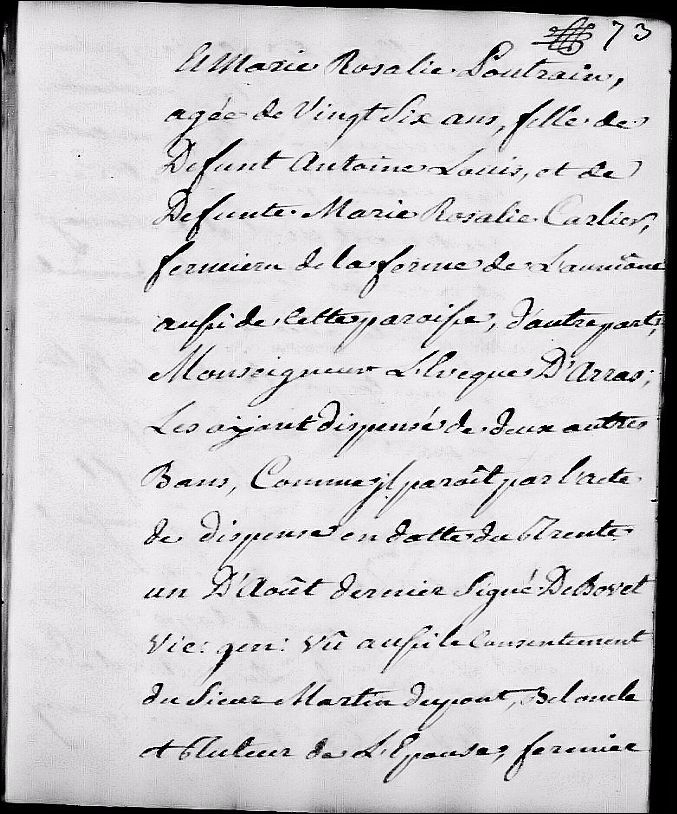 73
et Marie Rosalie Loutrain,
agée de Vingt Six ans, fille de
Defunt Antoine Louis, et de
Defunte Marie Rosalie Carlier,
fermiers de la ferme de L'aumône
aussi de Cette paroisse, d'autre part,
Monseigneur L'Eveque D'Arras,
Les ayant dispensé de deux autres
Bans, Comme jl paroît par l'acte
de dispense en datte du Trente
un D'Août dernier Signé DeBovet
vic: gen: vû aussi le Consentement
du Sieur Martin dupont, Bel oncle
et Tuteur de L'Epouse, fermier